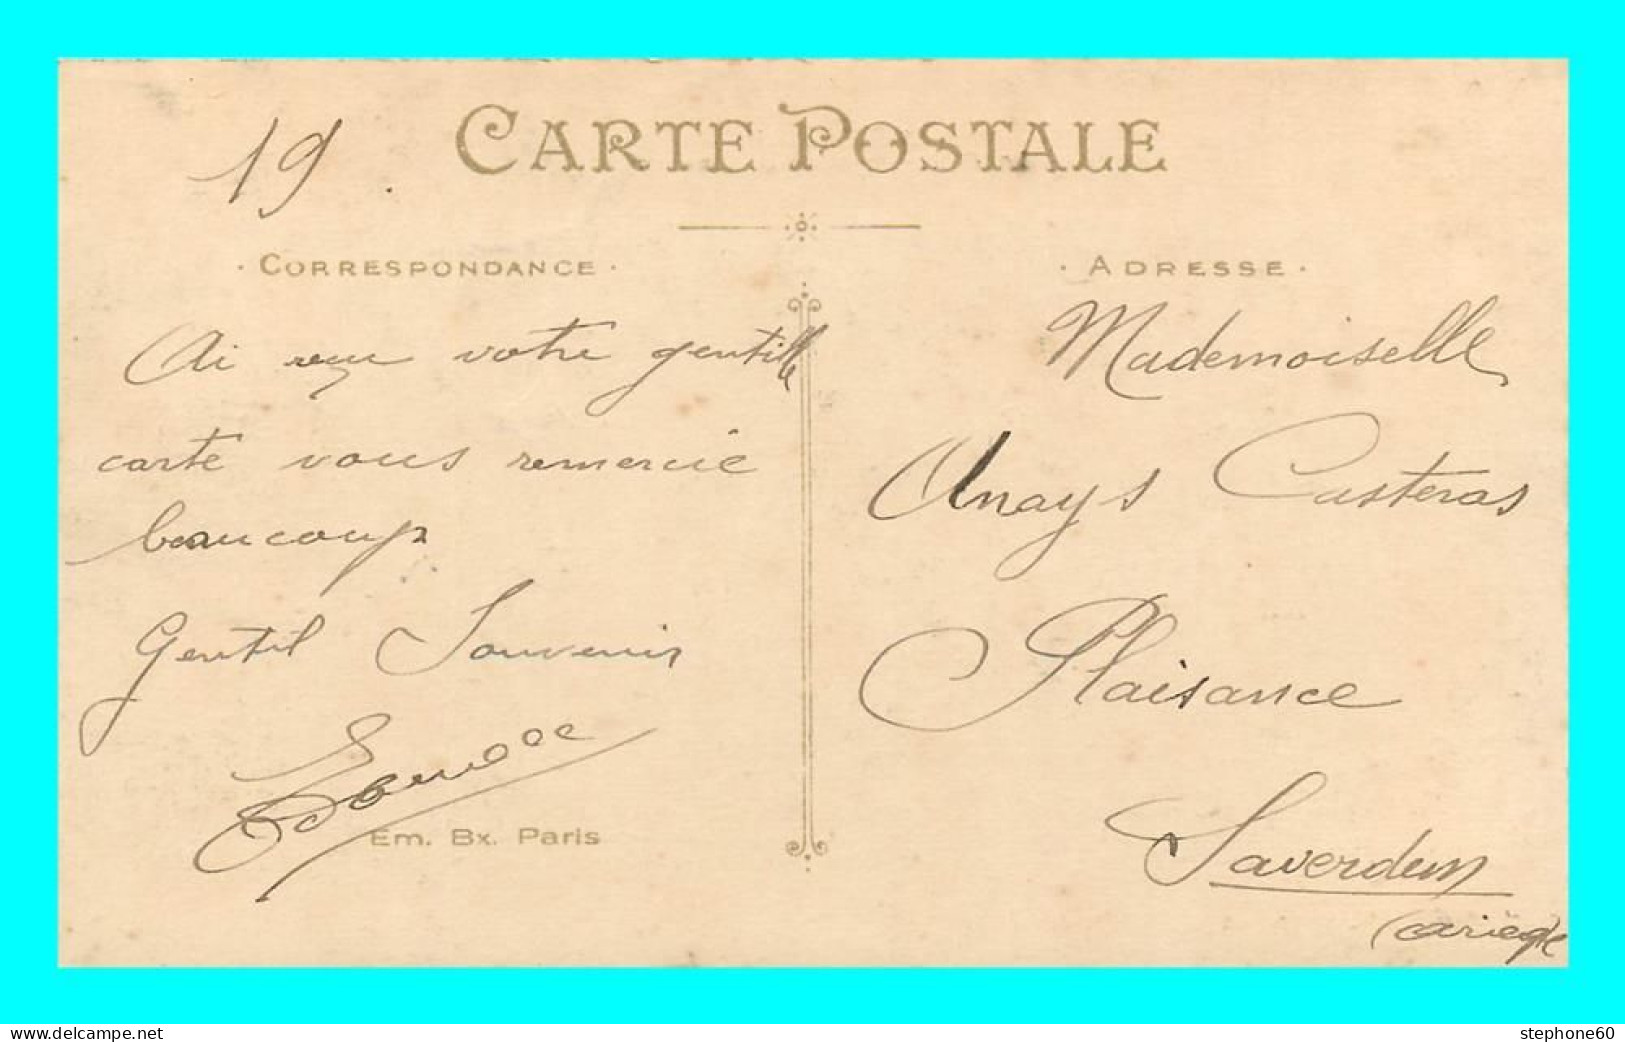 19
CARTE POSTALE
· CORRESPONDANCE ·
Ai reçu votre gentille
carte vous remercie
beaucoup
Gentil Souvenir
Em. Bx. Paris
· ADRESSE ·
Mademoiselle
Anays Casteras
Plaisance
Saverdun
(Ariège
www.delcampe.net
stephone60